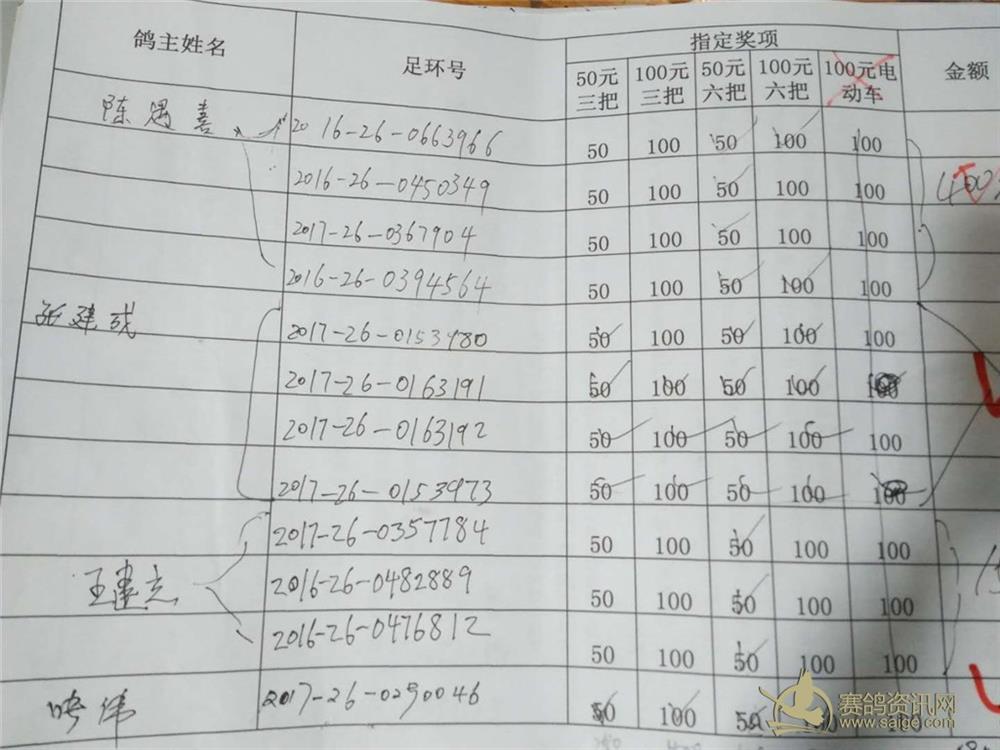 鸽主姓名 足环号 指定奖项 金额
50元三把 100元三把 50元六把 100元六把 100元电动车
陈遇喜 2016-26-0663966 50 100 50 100 100
2016-26-0450349 50 100 50 100 100
2017-26-0367904 50 100 50 100 100
2016-26-0394564 50 100 50 100 100
张建成 2017-26-0153980 50 100 50 100 100
2017-26-0163191 50 100 50 100 100
2017-26-0163192 50 100 50 100 100
2017-26-0153973 50 100 50 100 100
2017-26-0357784 50 100 50 100 100
王建立 2016-26-0482889 50 100 50 100 100
2016-26-0476812 50 100 50 100 100
2017-26-0290046 50 100 50 100 100
赛鸽资讯网
www.saige.com